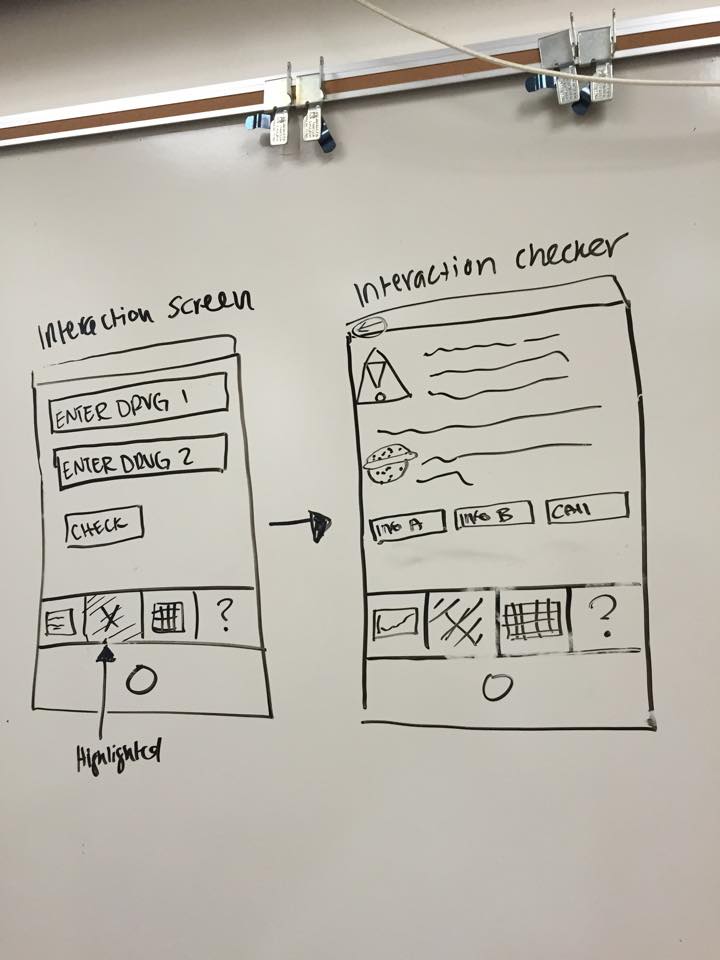 Interaction screen
ENTER DRUG 1
ENTER DRUG 2
CHECK
?
Highlighted
Interaction checker
INFO A
INFO B
CALL
?